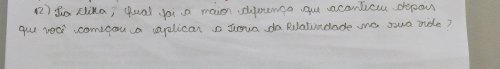 12) Tia Elika, qual foi a maior diferença que aconteceu depois
que você começou a aplicar a Teoria da Relatividade na sua vida?